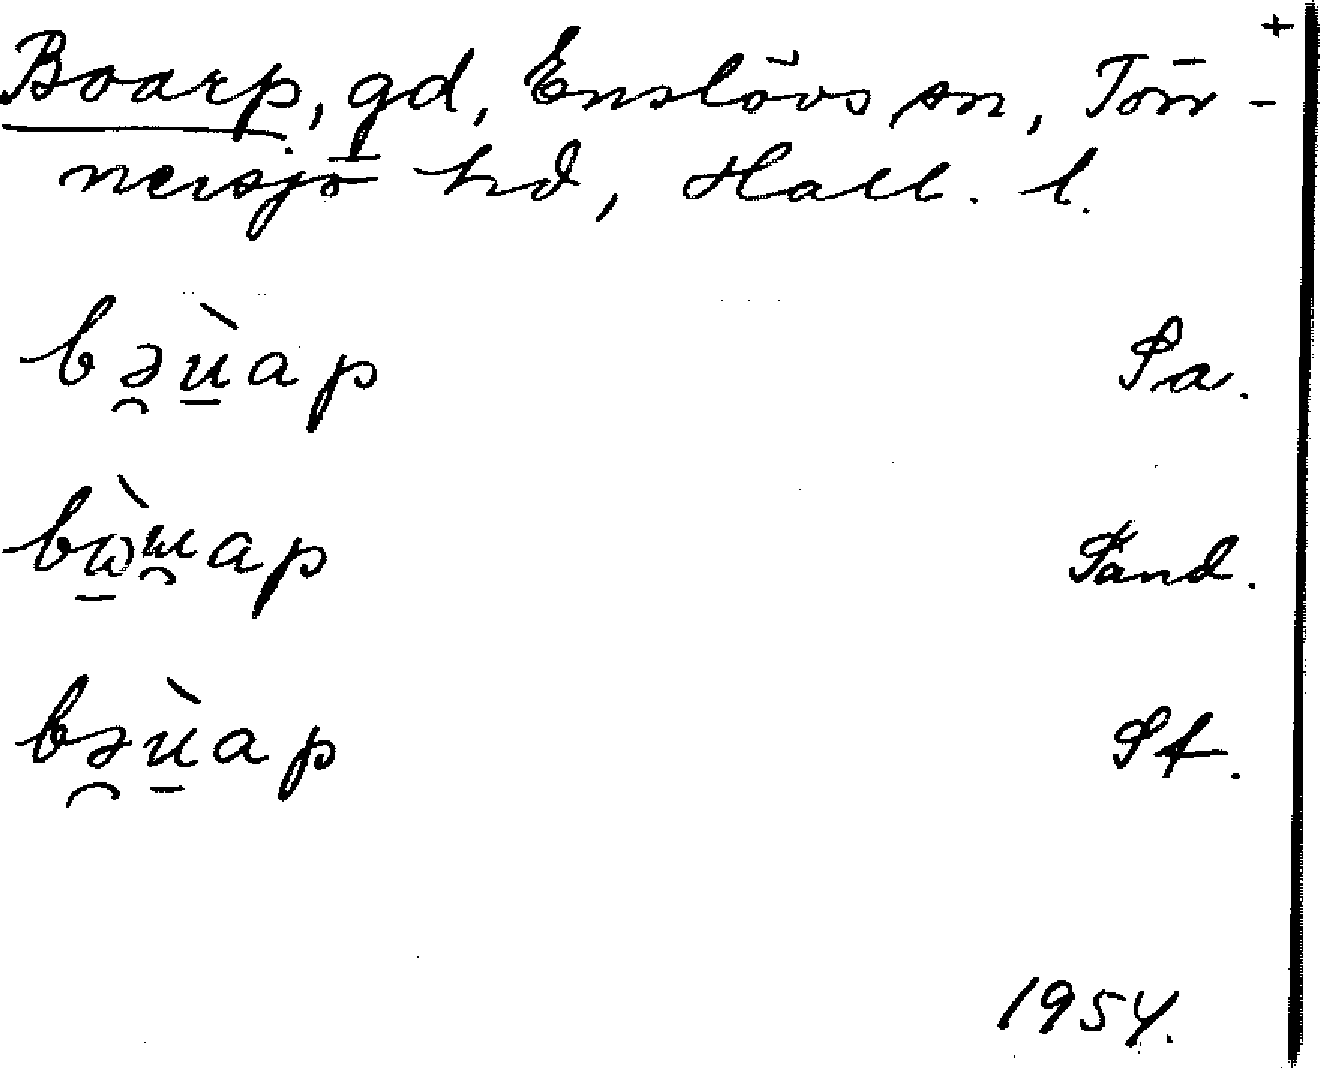 +
Boarp, gd, Enslövs sn, Tön-
nersjö hd, Hall. l.
bə̯ù̱ap Sa.
bɷ̱̀ɯ̯ap Sand.
bə̯ù̱ap St.
1954.